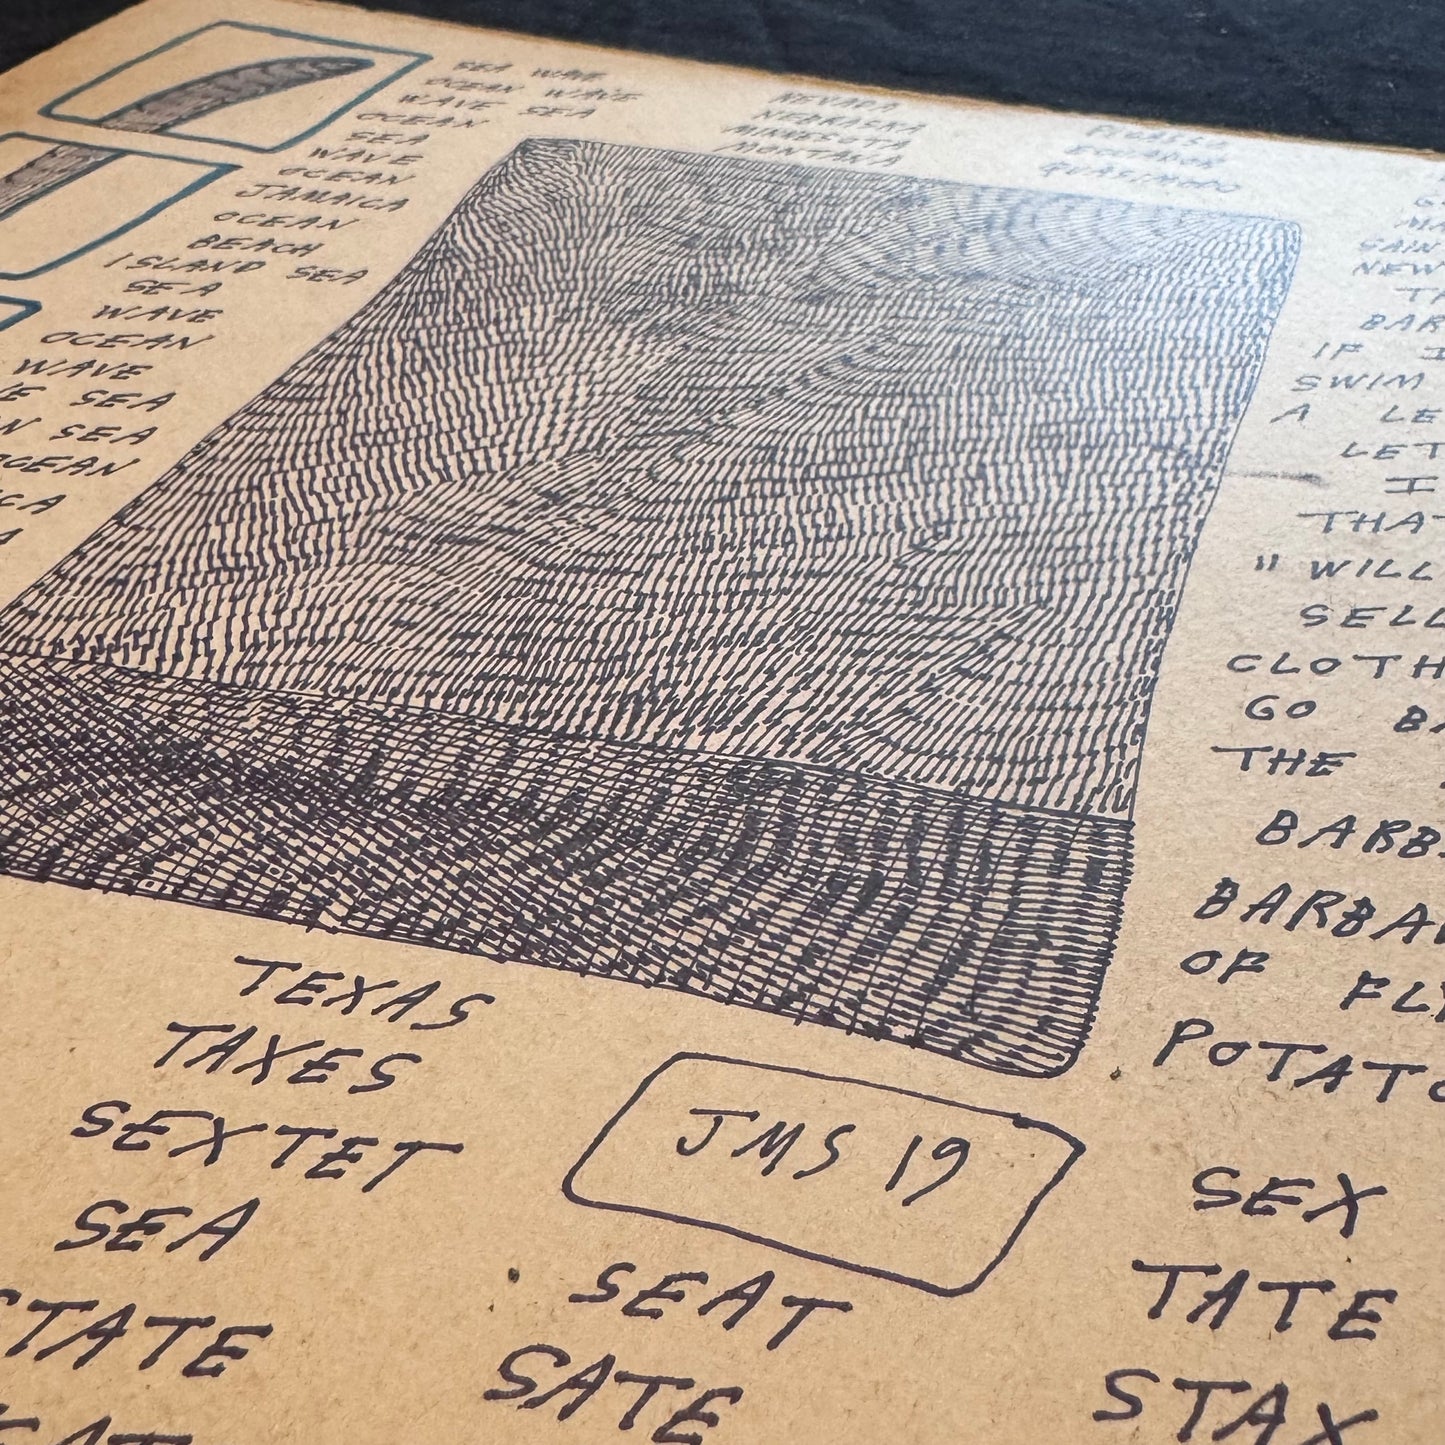 SEA WAVE
OCEAN WAVE
WAVE SEA
OCEAN
SEA
WAVE
OCEAN
JAMAICA
OCEAN
BEACH
ISLAND SEA
SEA
WAVE
OCEAN
WAVE
SEA
SEA
OCEAN
NEVADA
NEBRASKA
MINNESOTA
MONTANA
ECUADOR
QUASIMODO
NEW
BAR
IF I
SWIM
A LE
LET
I
THAT
"WILL
SELL
CLOTH
GO BA
THE
BARB
BARBA
OF FLY
POTATO
TEXAS
TAXES
SEXTET
SEA
STATE
JMS 19
SEAT
SATE
SEX
TATE
STAX